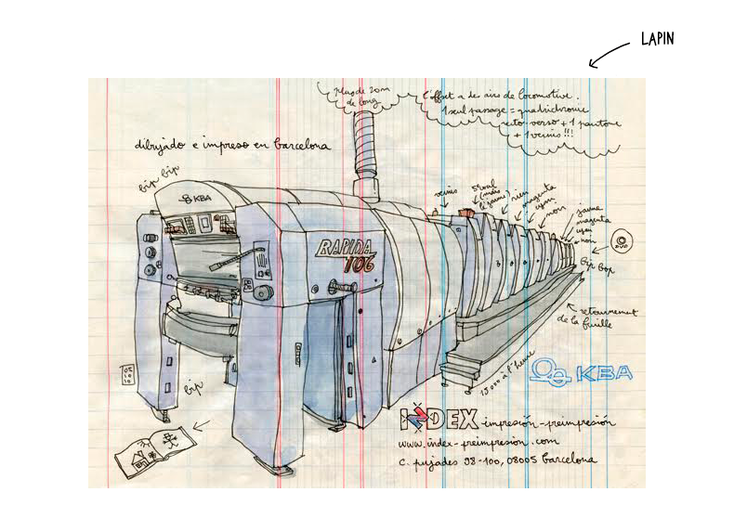 LAPIN
plus de 20m
de long
l'offset a des airs de locomotive.
1 seul passage = quadrichromie
recto verso + 1 pantone
+ 1 vernis !!!
dibujado e impreso en barcelona
bip bip
KBA
RAPIDA
106
vernis
rien
magenta
cyan
noir
jaune
magenta
cyan
noir
bip bop
retournement
de la feuille
15000 à l'heure
bip
KBA
INDEX impresión-preimpresión
www.index-preimpresion.com
c. pujades 98-100, 08005 barcelona